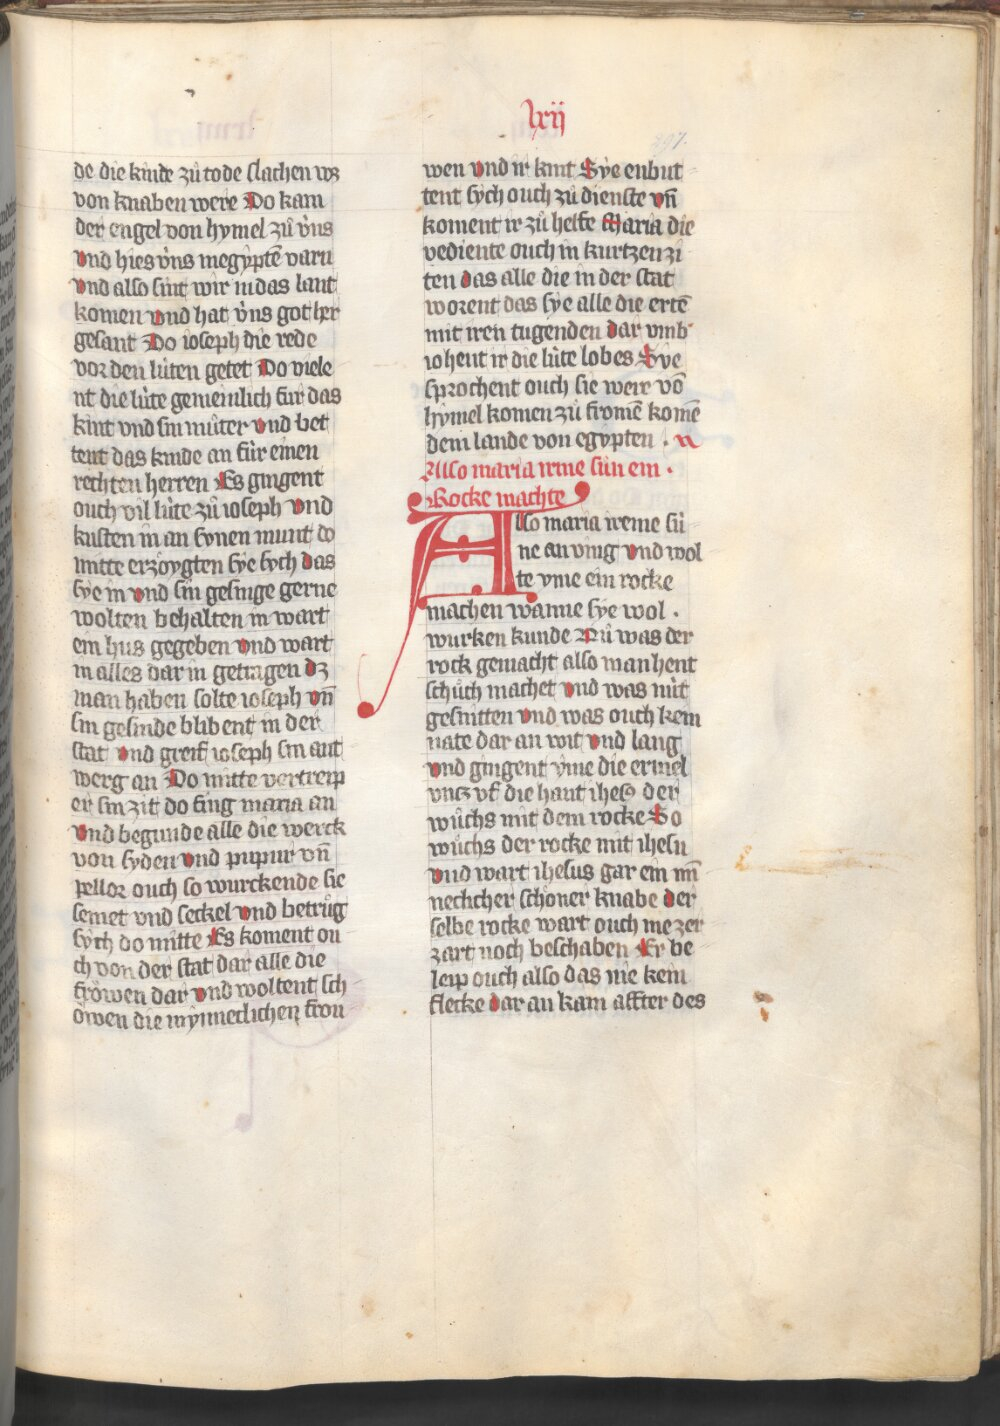 lxij
297.
de die kinde zů tode slachen wz
von knaben were Do kam
der engel von hymel zů v̇ns
vnd hies v̇ns in egyptē varn
vnd also sint wir in das lant
komen vnd hat v̇ns got her
gesant Do ioseph die rede
vor den lu̇ten getet Do viele
nt die lu̇te gemeinlich fu̇r das
kint vnd sin můter vnd bet
tent das kinde an fu̇r einen
rechten herren Es gingent
ouch vil lu̇te zů ioseph vnd
kusten in an synen munt do
mitte erzöygten sye sych das
sye in vnd sin gesinge gerne
wolten behalten in wart
ein hus gegeben vnd wart
in alles dar in getragen dz
man haben solte ioseph vn̄
sin gesinde blibent in der
stat vnd greif ioseph sin ant
werg an Do mitte vertreip
er sin zit do fing maria an
vnd begunde alle die werck
von syden vnd purpur vn̄
pellor ouch so wurckende sie
semet vnd seckel vnd betrůg
sych do mitte Es koment ou
ch von der stat dar alle die
fröwen dar vnd woltent sch
öwen die mynneclichen frou
wen vnd ir kint Sye enbut
tent sych ouch zů dienste vn̄
koment ir zů helfe Maria die
vediente ouch in kurtzen zi
ten das alle die in der stat
worent das sye alle die ertē
mit iren tugenden dar vmb
iohent ir die lu̇te lobes Sye
sprochent ouch sie were vō
hymel komen zů fromē komē
dem lande von egypten .
Also maria irme sun ein .
Rocke machte
Also maria ireme sů
ne an ving vnd wol
te yme ein rocke
machen wanne sye wol .
wurken kunde Nů was der
rock gemacht also man hent
schůch machet vnd was nu̇t
gesnitten vnd was ouch kein
nate dar an wit vnd lang
vnd gingent yme die ermel
vntz vf die hant ihesꝰ der
wůchs mit dem rocke So
wůchs der rocke mit ihesu
vnd wart ihesus gar ein mī
neclicher schöner knabe der
selbe rocke wart ouch nie zer
zart noch beschaben Er be
leip ouch also das nie kein
flecke dar an kam affter des